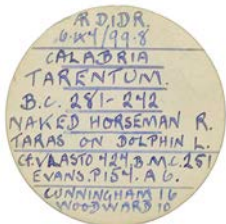 ÆR DIDR.
6.47/99.8
CALABRIA
TARENTUM.
B.C. 281-242
NAKED HORSEMAN R.
TARAS ON DOLPHIN L.
Cf. VLASTO 424, B.M.C. 251
EVANS. P154. A 6.
CUNNINGHAM 16
WOODWARD 10